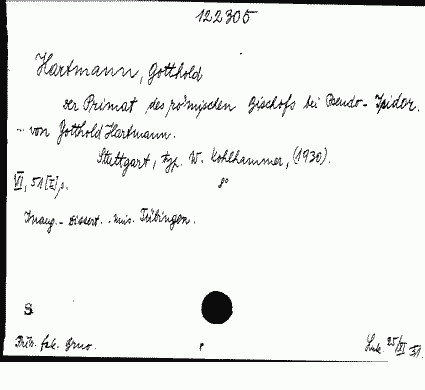 122305
Hartmann, Gotthold
Der Primat des römischen Bischofs bei Pseudo-Isidor.
- von Gotthold Hartmann.
Stuttgart, typ. W. Kohlhammer, (1930).
VI, 51 [I] p. 8°
Inaug.-Dissert. - Univ. Tübingen.
S